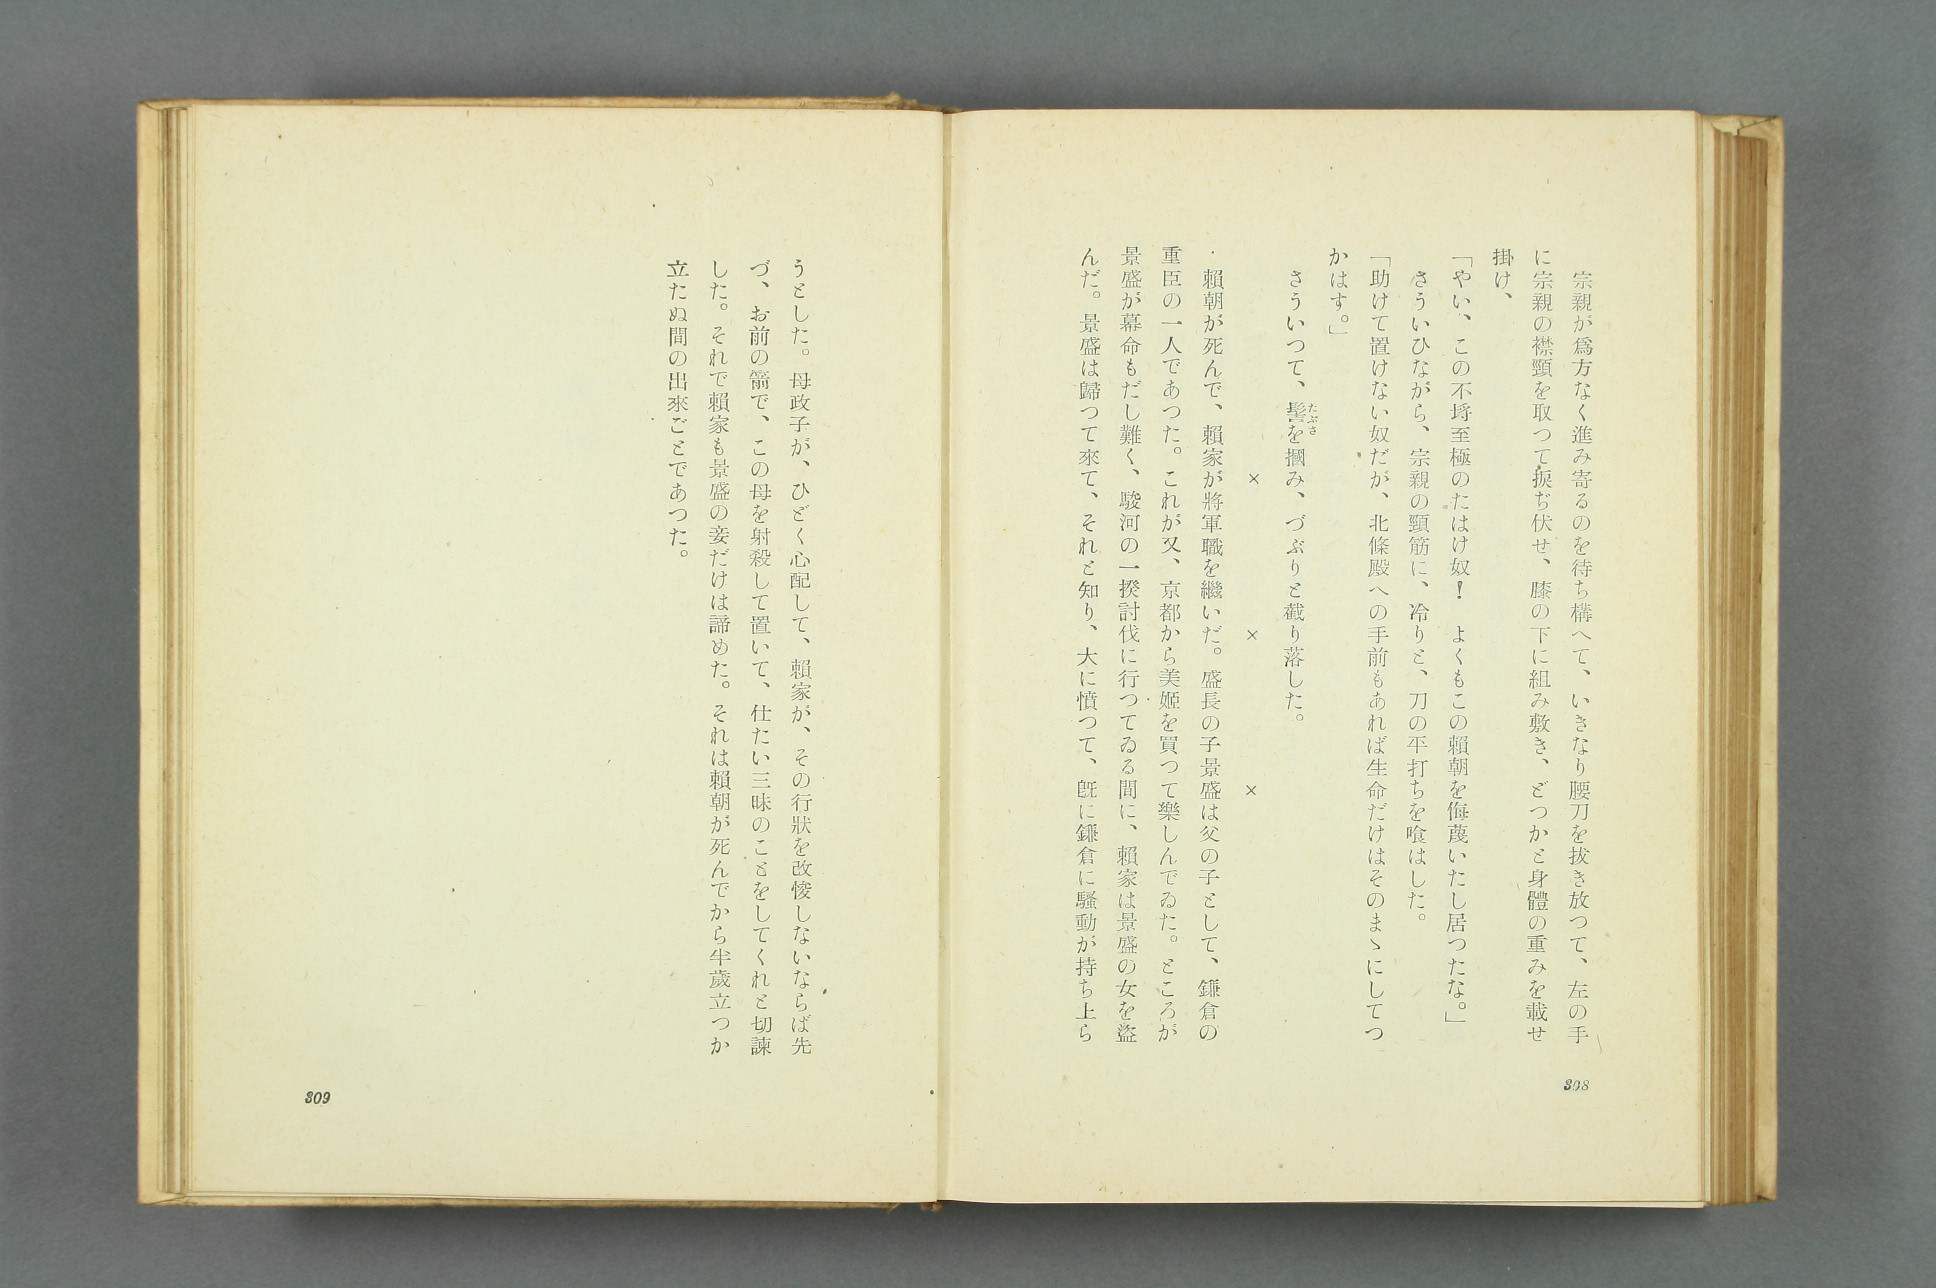 宗親が爲方なく進み寄るのを待ち構へて、いきなり腰刀を拔き放つて、左の手
に宗親の襟頸を取つて捩ぢ伏せ、膝の下に組み敷き、どつかと身體の重みを載せ
掛け、
「やい、この不埓至極のたはけ奴！　よくもこの賴朝を侮蔑いたし居つたな。」
さういひながら、宗親の頸筋に、冷りと、刀の平打ちを喰はした。
「助けて置けない奴だが、北條殿への手前もあれば生命だけはそのまゝにしてつ
かはす。」
さういつて、髻を摑み、づぶりと截り落した。
たぶさ
×　×　×
賴朝が死んで、賴家が將軍職を繼いだ。盛長の子景盛は父の子として、鎌倉の
重臣の一人であつた。これが又、京都から美姬を買つて樂しんでゐた。ところが
景盛が幕命もだし難く、駿河の一揆討伐に行つてゐる間に、賴家は景盛の女を盜
んだ。景盛は歸つて來て、それと知り、大に憤つて、旣に鎌倉に騷動が持ち上ら
308
うとした。母政子が、ひどく心配して、賴家が、その行狀を改悛しないならば先
づ、お前の箭で、この母を射殺して置いて、仕たい三昧のことをしてくれと切諫
した。それで賴家も景盛の妾だけは諦めた。それは賴朝が死んでから半歲立つか
立たぬ間の出來ごとであつた。
309